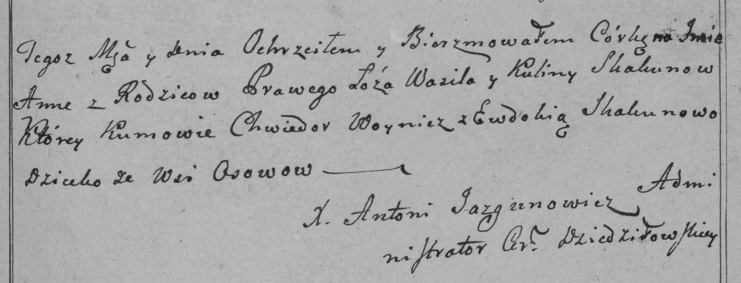 Tegoż Mṣa y dnia Ochrzciłem y Bierzmowałem Córkę na Imie
Anne z Rodzicow Prawego Łoża Wasila y Kuliny Skakunow
Którey Kumowie Chwiedor Woynicz z Ewdokią Skakunowo
Dziecko ze Wsi Osowow
X. Antoni Jazgunowicz Admi
nistrator Cer. Dziedziłowskiey